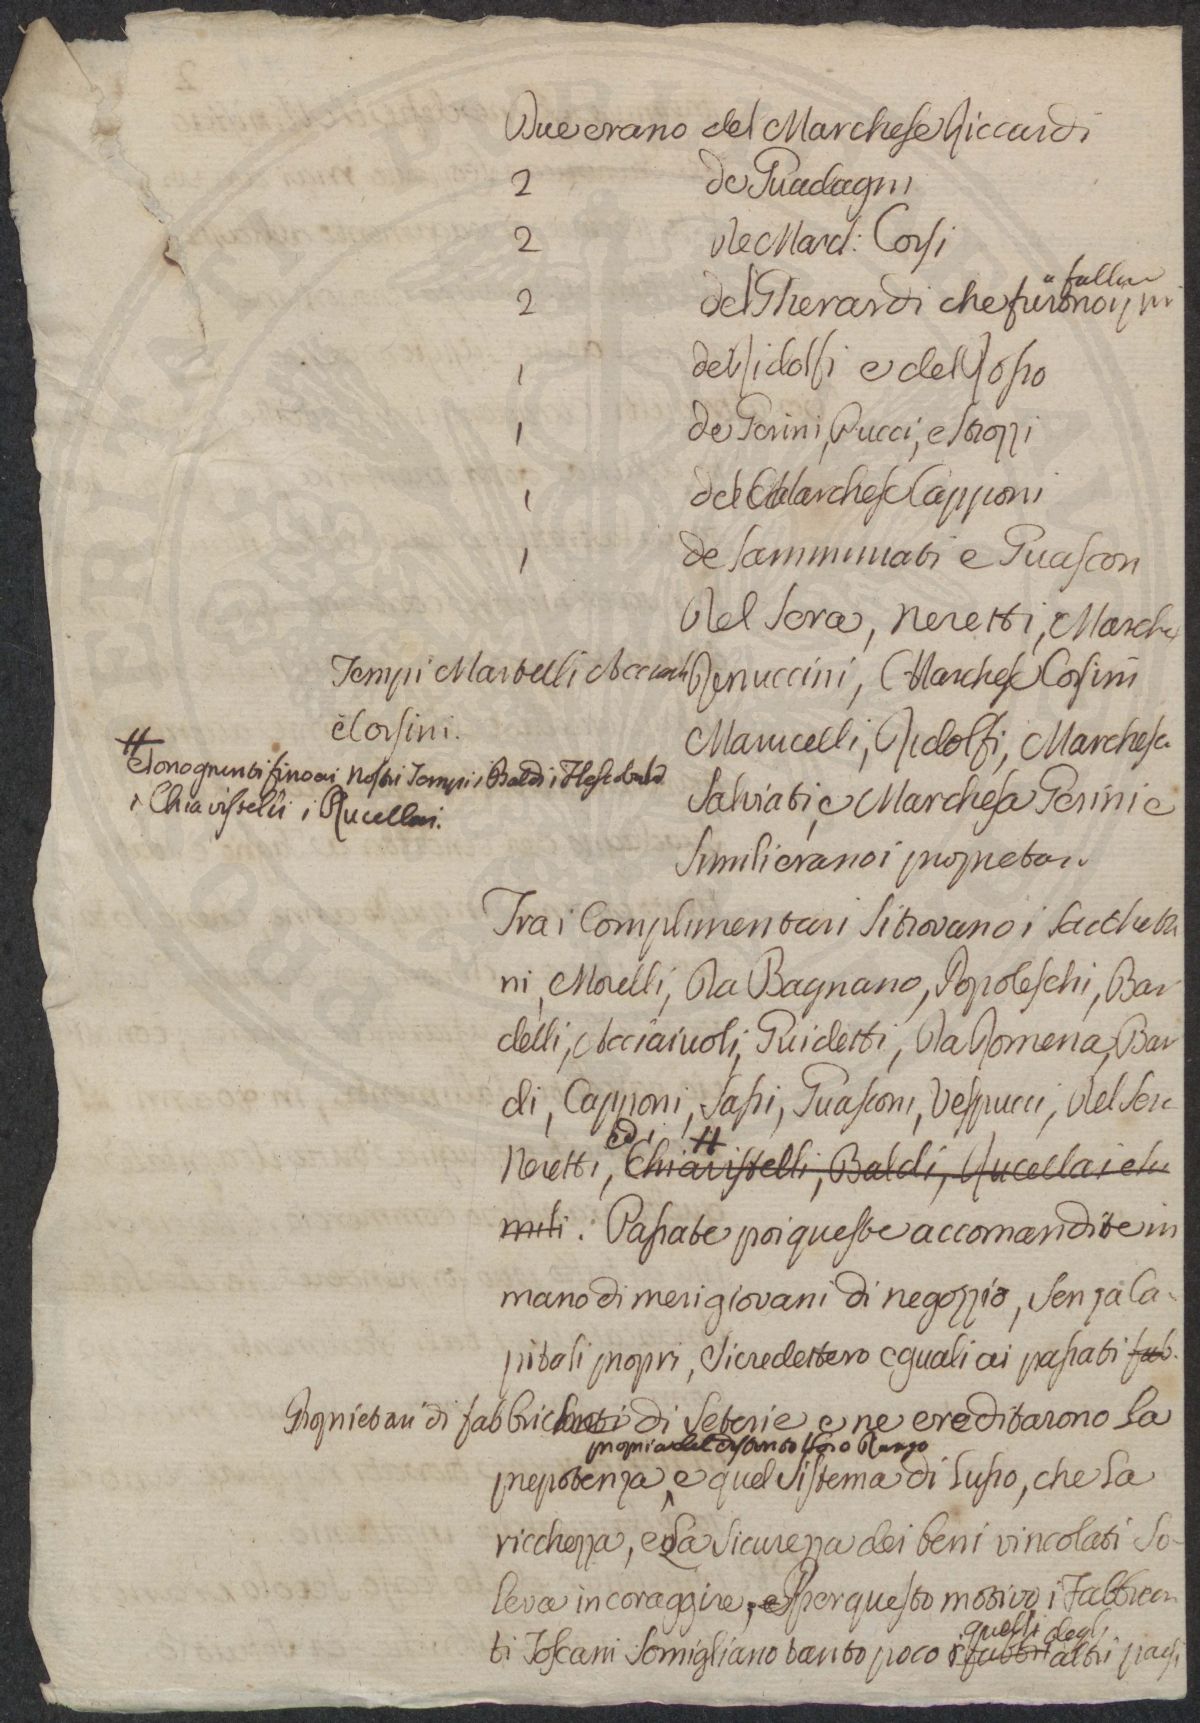 Due erano del Marchese Riccardi
2 de Guadagni
2 de March: Corsi
2 del Gherardi che furono
de Ridolfi e del Rosso
1 de Gerini, Pucci, e Strozzi
1 del Marchese Capponi
1 de Sanminiati e Guascon
Del Sera, Neretti, Marche
Tempi Martelli Acciaiuoli Renuccini, Marchese Corsini
e Corsini. Marucelli, Ridolfi, Marchese
Salviati, e Marchese Gerini e
Simili erano i proprietari
fino ai nostri Tempi i Baldi i
i Chiavistelli i Rucellai.
Tra i Complimentari si trovano i Sacchetti
ni, Morelli, Da Bagnano, Popoleschi, Bar
delli, Acciaiuoli, Guidetti, Da Romena, Bar
di, Capponi, Sassi, Guasconi, Vespucci, Del Sera
Neretti, ed i Chiavistelli, Baldi, Rucellai e Si
mili. Passate poi queste accomandite in
mano di meri giovani di negozzio, Senza Ca-
pitali propri, Si credettero eguali ai passati fab.
Proprietari di fabbriche di Seterie e ne ereditarono la
propria del distinto loro Rango
prepotenza, e quel Sistema di lusso, che la
ricchezza, e la Sicurezza dei beni vincolati So-
leva incoraggire, e per questo motivo i Fabbrican
quelli degli
ti Toscani Somigliano tanto poco i fabbri altri paesi